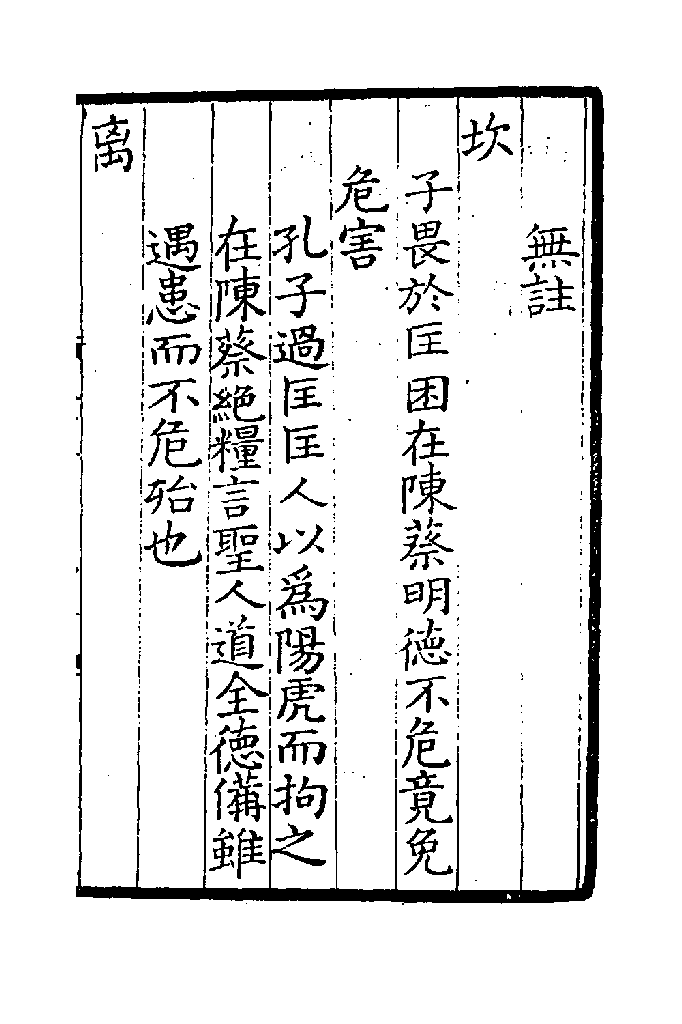 無註
坎
子畏於匡困在陳蔡明德不危竟免
危害
孔子過匡匡人以爲陽虎而拘之
在陳蔡絶糧言聖人道全德備雖
遇患而不危殆也
离